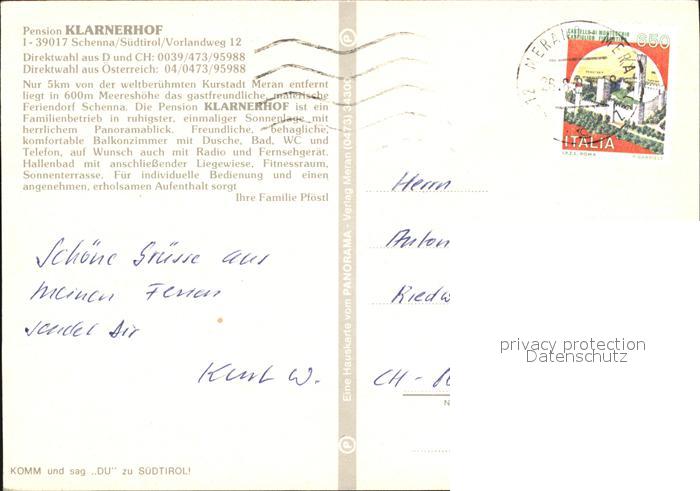 Pension KLARNERHOF
I - 39017 Schenna/Südtirol/Vorlandweg 12
Direktwahl aus D und CH: 0039/473/95988
Direktwahl aus Österreich: 04/0473/95988
Nur 5km von der weltberühmten Kurstadt Meran entfernt
liegt in 600m Meereshöhe das gastfreundliche, malerische
Feriendorf Schenna. Die Pension KLARNERHOF ist ein
Familienbetrieb in ruhigster, einmaliger Sonnenlage mit
herrlichem Panoramablick. Freundliche, behagliche,
komfortable Balkonzimmer mit Dusche, Bad, WC und
Telefon, auf Wunsch auch mit Radio und Fernsehgerät.
Hallenbad mit anschließender Liegewiese, Fitnessraum,
Sonnenterrasse. Für individuelle Bedienung und einen
angenehmen, erholsamen Aufenthalt sorgt
Ihre Familie Pföstl
Schöne Grüsse aus
meinen Ferien
sendet Dir
Kurt W.
KOMM und sag „DU" zu SÜDTIROL!
Eine Hauskarte vom PANORAMA - Verlag Meran (0473)
MERANO MERA
CASTELLO DI MONTECCHIO
CASTIGLION FIORENTINO
650
ITALIA
I.P.Z.S. ROMA
Herrn
Anton
Riedw
CH -
N
privacy protection
Datenschutz